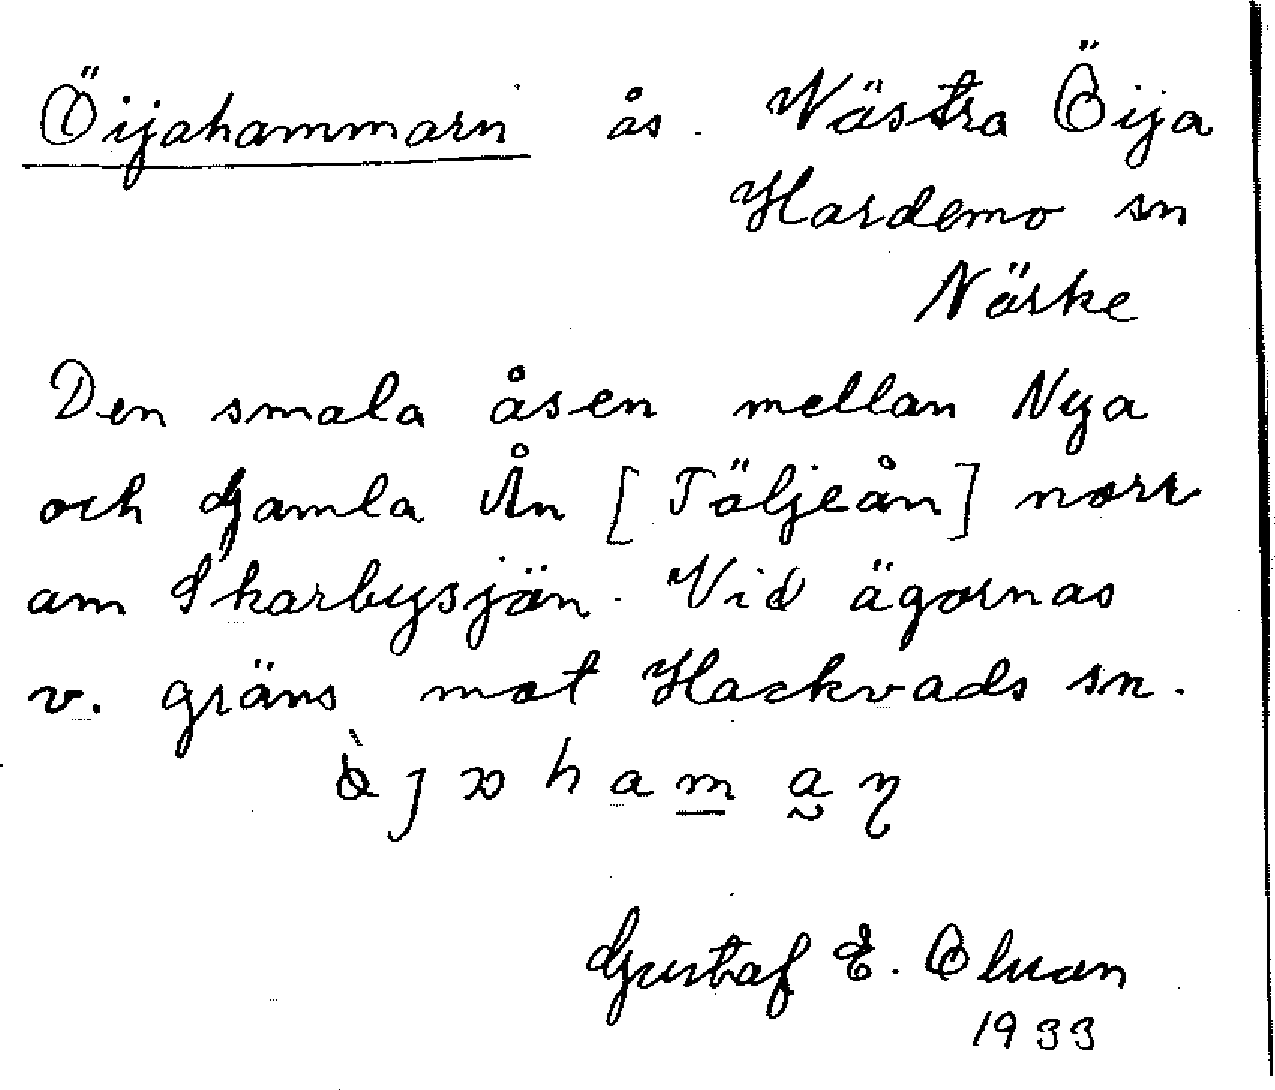 Öijahammarn ås. Västra Öija
Hardemo sn
Närke
Den smala åsen mellan Nya
och Gamla Ån [Täljeån] norr
om Skarbysjön. Vid ägornas
v. gräns mot Hackvads sn.
Gustaf E.
1933